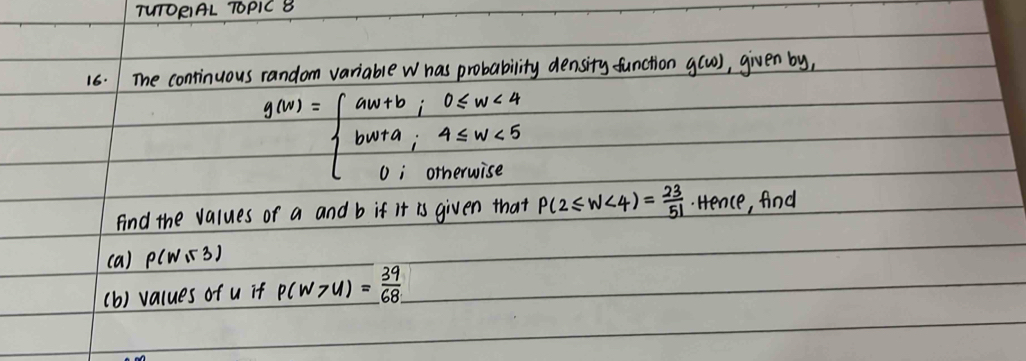 TUTORIAL TOPIC 8
16. The continuous random variable W has probability density function g(w), given by,
g(w) = { aw+b ; 0 ≤ w < 4
bw+a ; 4 ≤ w < 5
0 ; otherwise
Find the values of a and b if it is given that P(2 ≤ W < 4) = 23/51 . Hence, find
(a) P(W 3)
(b) values of u if P(W > u) = 39/68